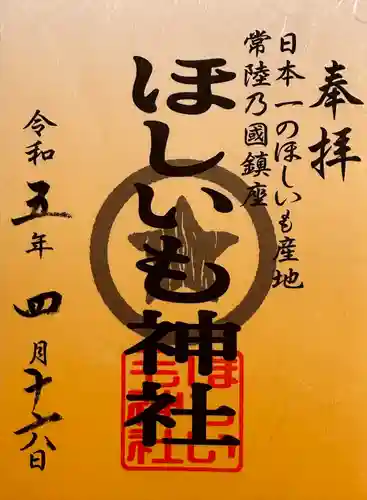 奉拝
日本一のほしいも産地
常陸乃國鎮座
ほしいも神社
ほしい
も神社
令和五年四月十六日